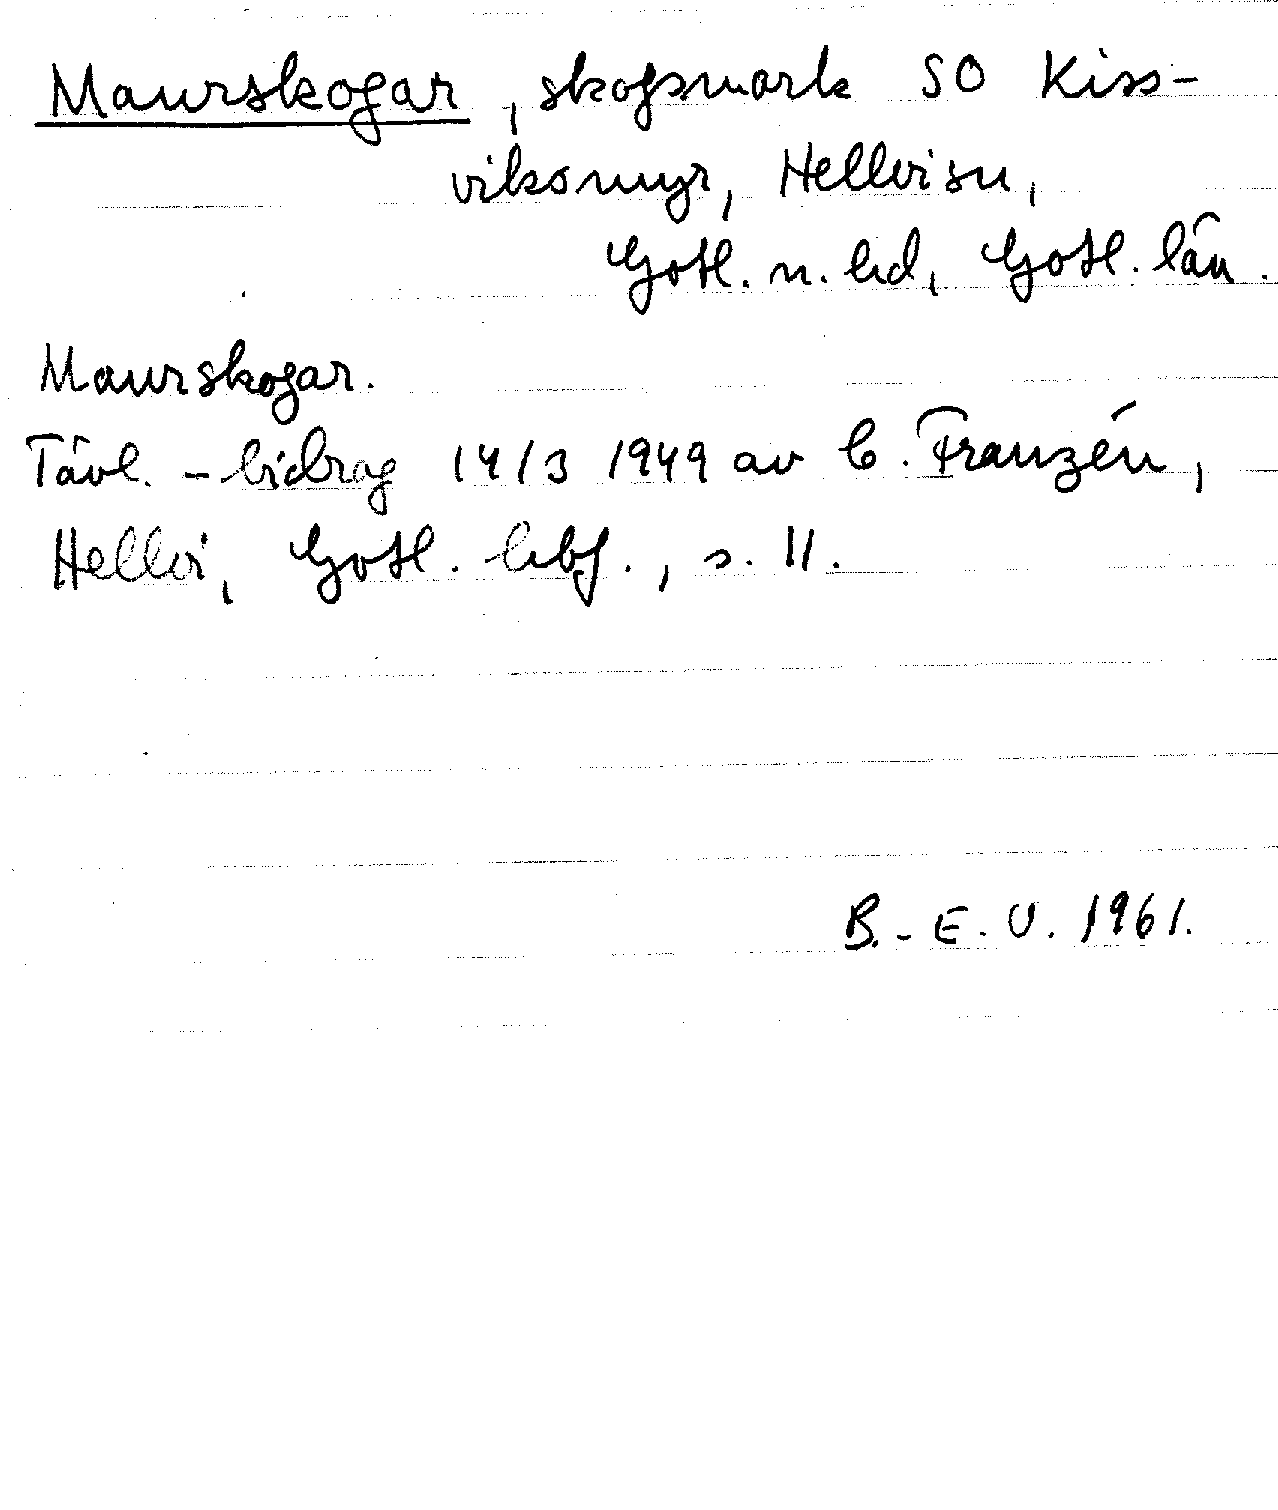 Maurskogar, skogsmark SO Kiss-
viksmyr, Hellvi sn,
Gotl. n. hd, Gotl. län.
Maurskogar.
Tävl.-bidrag 14/3 1949 av C. Franzén,
Hellvi, Gotl. hbf., s. 11.
B.-E. U. 1961.